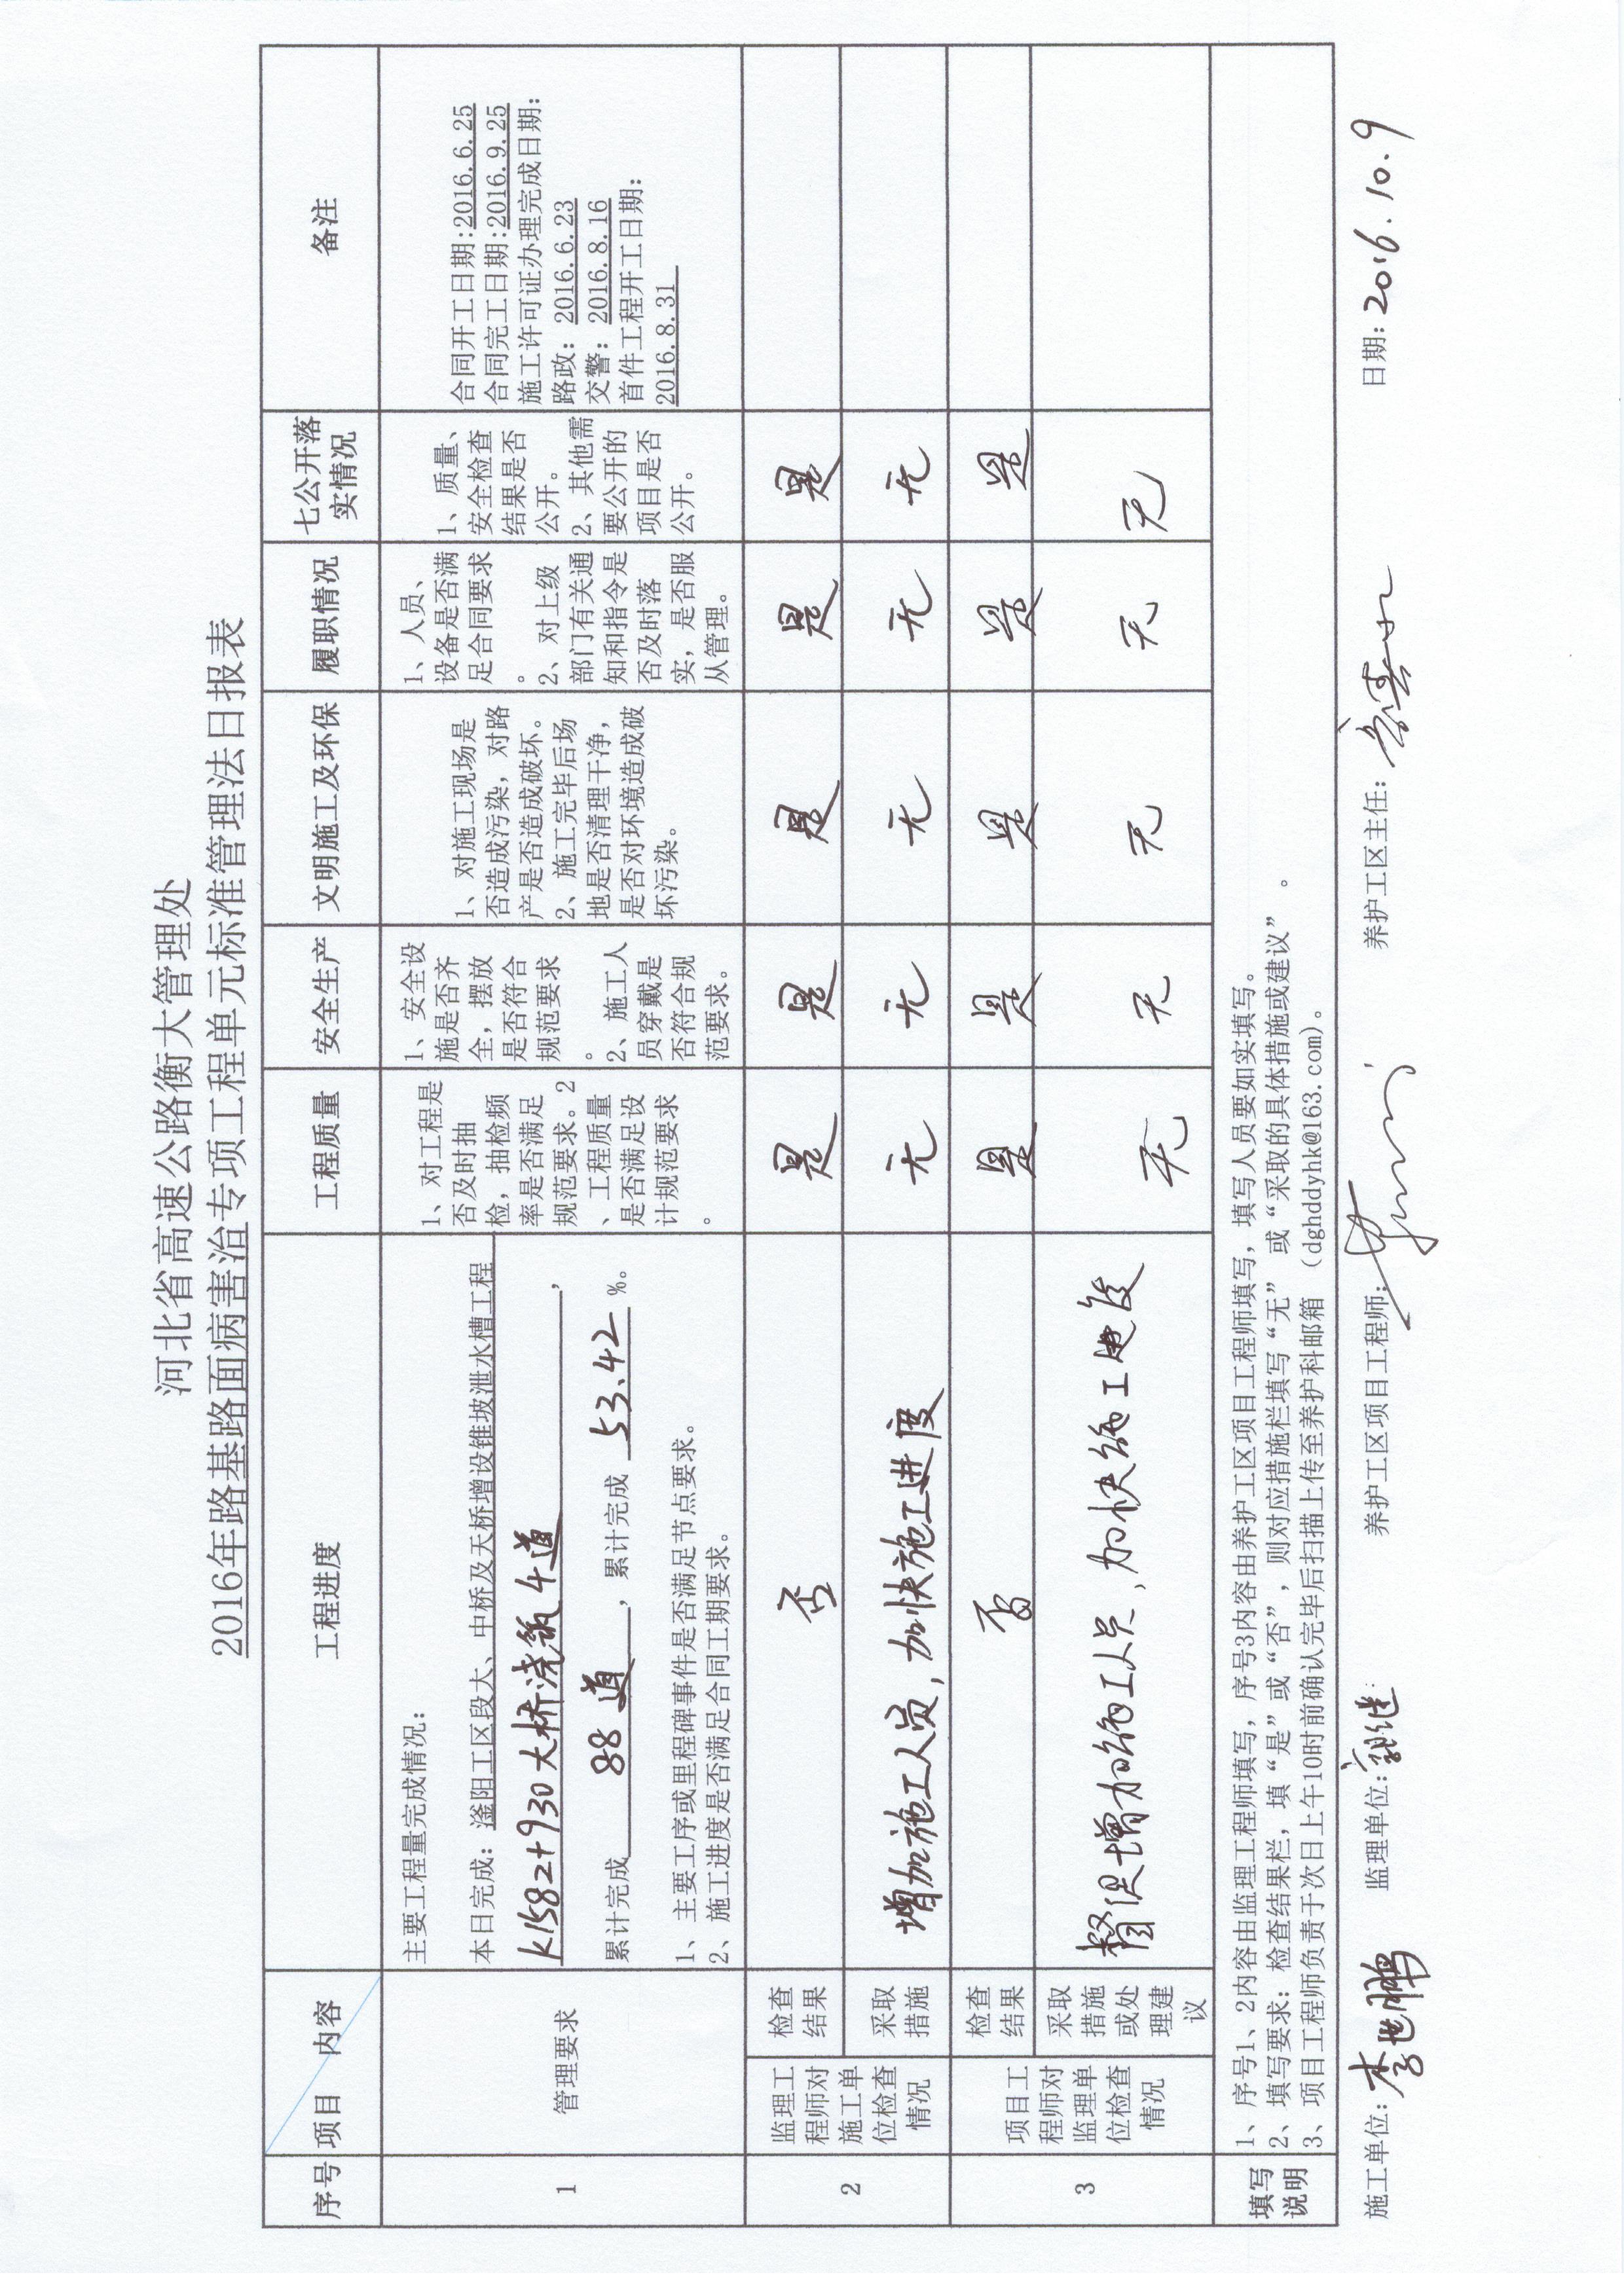 河北省高速公路衡大管理处
2016年路基路面病害治专项工程单元标准管理法日报表
序号 项目 内容 工程进度 工程质量 安全生产 文明施工及环保 履职情况 七公开落
实情况 备注
1 管理要求
主要工程量完成情况:
本日完成: 滏阳工区段大、中桥及天桥增设锥坡泄水槽工程
K1582+930大桥浇筑4道,
累计完成 88道, 累计完成 53.42 %。
1、主要工序或里程碑事件是否满足节点要求。
2、施工进度是否满足合同工期要求。
1、对工程是
否及时抽
检,抽检频
率是否满足
规范要求。2
、工程质量
是否满足设
计规范要求
。
1、安全设
施是否齐
全,摆放
是否符合
规范要求
。
2、施工人
员穿戴是
否符合规
范要求。
1、对施工现场是
否造成污染,对路
产是否造成破坏。
2、施工完毕后场
地是否清理干净,
是否对环境造成破
坏污染。
1、人员、
设备是否满
足合同要求
。
2、对上级
部门有关通
知和指令是
否及时落
实,是否服
从管理。
1、质量、
安全检查
结果是否
公开。
2、其他需
要公开的
项目是否
公开。
合同开工日期:2016.6.25
合同完工日期:2016.9.25
施工许可证办理完成日期:
路政: 2016.6.23
交警: 2016.8.16
首件工程开工日期:
2016.8.31
2 监理工
程师对
施工单
位检查
情况
检查
结果 否 是 是 是 是 是
采取
措施 增加施工人员,加快施工进度 无 无 无 无 无
3 项目工
程师对
监理单
位检查
情况
检查
结果 否 是 是 是 是 是
采取
措施
或处
理建
议
督促增加施工人员,加快施工进度 无 无 无 无 无
填写
说明
1、序号1、2内容由监理工程师填写,序号3内容由养护工区项目工程师填写,填写人员要如实填写。
2、填写要求: 检查结果栏,填“是”或“否”,则对应措施栏填写“无”或“采取的具体措施或建议”。
3、项目工程师负责于次日上午10时前确认完毕后扫描上传至养护科邮箱(dghddyhk@163.com)。
施工单位: 李世鹏 监理单位: 养护工区项目工程师: 养护工区主任: 日期: 2016.10.9